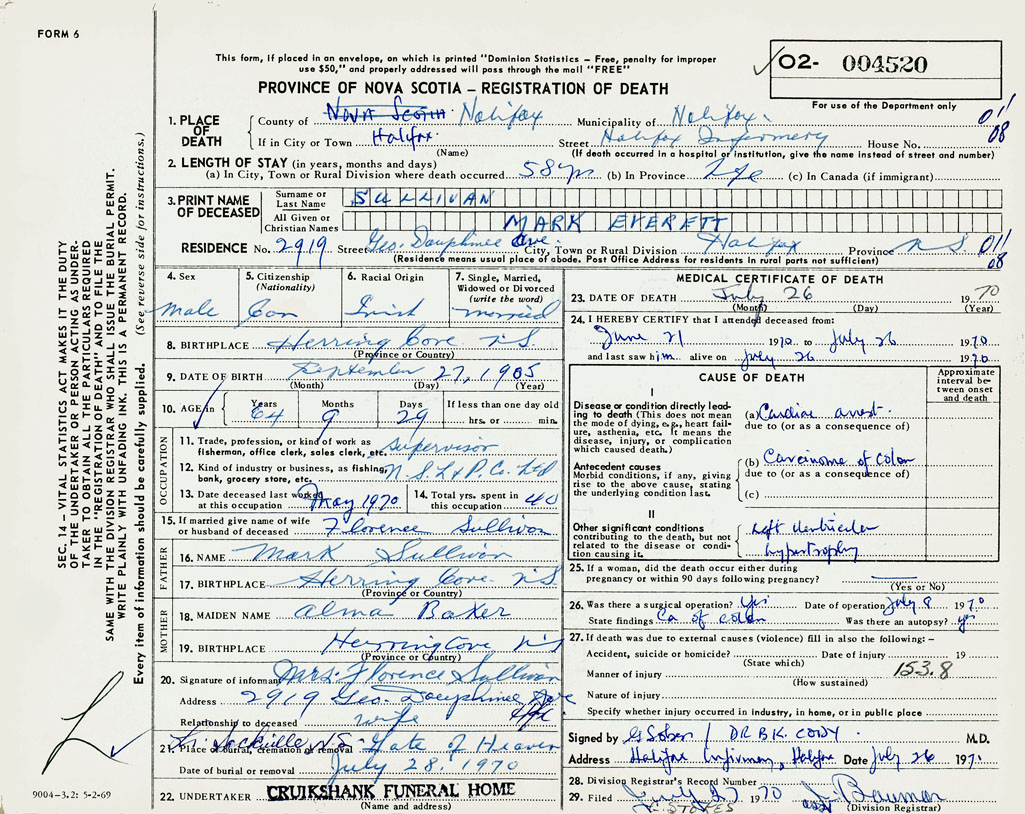 FORM 6
This form, if placed in an envelope, on which is printed "Dominion Statistics – Free, penalty for improper
use $50," and properly addressed will pass through the mail "FREE"
O2- 004520
For use of the Department only
PROVINCE OF NOVA SCOTIA – REGISTRATION OF DEATH
1. PLACE OF DEATH
County of Nova Scotia Halifax Municipality of Halifax 01/08
If in City or Town Halifax Street Halifax Infirmery House No.
(Name) (If death occurred in a hospital or institution, give the name instead of street and number)
2. LENGTH OF STAY (in years, months and days)
(a) In City, Town or Rural Division where death occurred 58 yrs (b) In Province Life (c) In Canada (if immigrant)
3. PRINT NAME OF DECEASED
Surname or Last Name SULLIVAN
All Given or Christian Names MARK EVERETT
RESIDENCE No. 2919 Street Geo. Dauphinee Ave. City, Town or Rural Division Halifax Province N S 01/08
(Residence means usual place of abode. Post Office Address for residents in rural parts not sufficient)
4. Sex
Male
5. Citizenship (Nationality)
Can
6. Racial Origin
Irish
7. Single, Married, Widowed or Divorced (write the word)
married
8. BIRTHPLACE Herring Cove N S.
(Province or Country)
9. DATE OF BIRTH September 27, 1905
(Month) (Day) (Year)
10. AGE in Years 64 Months 9 Days 29 If less than one day old hrs. or min.
OCCUPATION
11. Trade, profession, or kind of work as fisherman, office clerk, sales clerk, etc. Supervisor
12. Kind of industry or business, as fishing, bank, grocery store, etc. N.S.L & P. Co. Ltd
13. Date deceased last worked at this occupation May 1970
14. Total yrs. spent in this occupation 40
15. If married give name of wife or husband of deceased Florence Sullivan
FATHER
16. NAME Mark Sullivan
17. BIRTHPLACE Herring Cove N S
(Province or Country)
MOTHER
18. MAIDEN NAME Alma Baker
19. BIRTHPLACE Herring Cove N S
(Province or Country)
20. Signature of informant Mrs. Florence Sullivan
Address 2919 Geo. Dauphinee Ave Hfx
Relationship to deceased wife
21. Place of burial, cremation or removal Lr. Sackville, N.S. Gate of Heaven
Date of burial or removal July 28, 1970
22. UNDERTAKER CRUIKSHANK FUNERAL HOME
(Name and address)
MEDICAL CERTIFICATE OF DEATH
23. DATE OF DEATH July 26 1970
(Month) (Day) (Year)
24. I HEREBY CERTIFY that I attended deceased from:
June 21 1970 to July 26 1970
and last saw him alive on July 26 1970
CAUSE OF DEATH
Approximate interval between onset and death
I
Disease or condition directly leading to death (This does not mean the mode of dying, e.g., heart failure, asthenia, etc. It means the disease, injury, or complication which caused death.)
(a) Cardiac arrest
due to (or as a consequence of)
Antecedent causes
Morbid conditions, if any, giving rise to the above cause, stating the underlying condition last.
(b) Carcinoma of Colon
due to (or as a consequence of)
(c)
II
Other significant conditions contributing to the death, but not related to the disease or condition causing it.
Left Ventricular
hypertrophy
25. If a woman, did the death occur either during
pregnancy or within 90 days following pregnancy?
(Yes or No)
26. Was there a surgical operation? Yes Date of operation July 8 1970
State findings Ca of colon Was there an autopsy? yes
27. If death was due to external causes (violence) fill in also the following: –
Accident, suicide or homicide? Date of injury 19
(State which)
Manner of injury 153.8
(How sustained)
Nature of injury
Specify whether injury occurred in industry, in home, or in public place
Signed by / DR B K. CODY. M.D.
Address Halifax Infirmary, Halifax Date July 26 197
28. Division Registrar's Record Number
29. Filed July 27 1970
(Division Registrar)
STOKES
SEC. 14 – VITAL STATISTICS ACT MAKES IT THE DUTY
OF THE UNDERTAKER OR PERSON ACTING AS UNDERTAKER
TO OBTAIN ALL THE PARTICULARS REQUIRED
IN THE "REGISTRATION OF DEATH" AND TO FILE THE
SAME WITH THE DIVISION REGISTRAR WHO SHALL ISSUE THE BURIAL PERMIT.
WRITE PLAINLY WITH UNFADING INK. THIS IS A PERMANENT RECORD.
Every item of information should be carefully supplied. (See reverse side for instructions.)
9004-3.2: 5-2-69